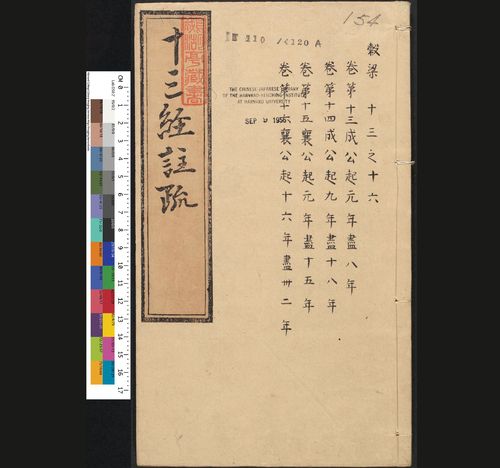 穀梁 十三之十六
卷第十三成公起元年盡八年
卷第十四成公起九年盡十八年
卷第十五襄公起元年盡十五年
卷第十六襄公起十六年盡卅二年
十三經註疏
154
110
120 A
THE CHINESE-JAPANESE LIBRARY
OF THE HARVARD-YENCHING INSTITUTE
AT HARVARD UNIVERSITY
SEP 9 1955
CM 0 1 2 3 4 5 6 7 8 9 10 11 12 13 14 15 16 17